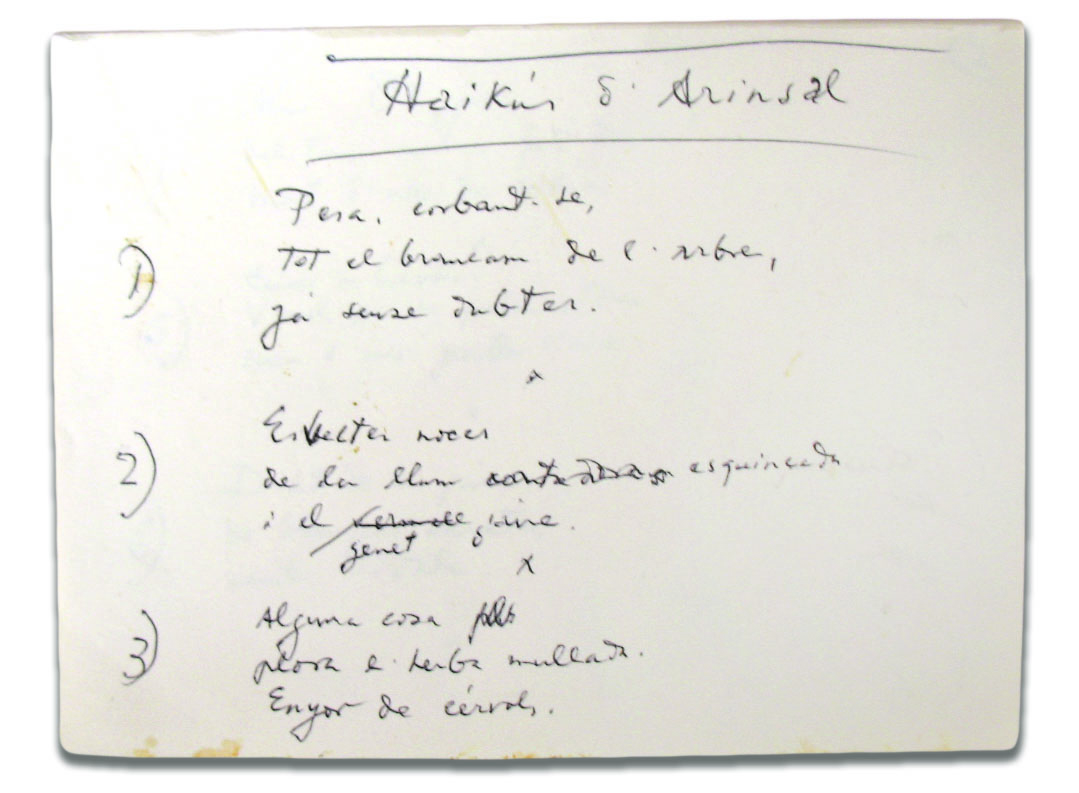 Haikús d'Arinsal
1)
Pesa, corbant-se,
tot el brancam de l'arbre,
ja sense dubtes.
2)
Esveltes noces
de la llum esquinçada
i el
genet
3)
Alguna cosa
plora l'herba mullada.
Enyor de cérvols.